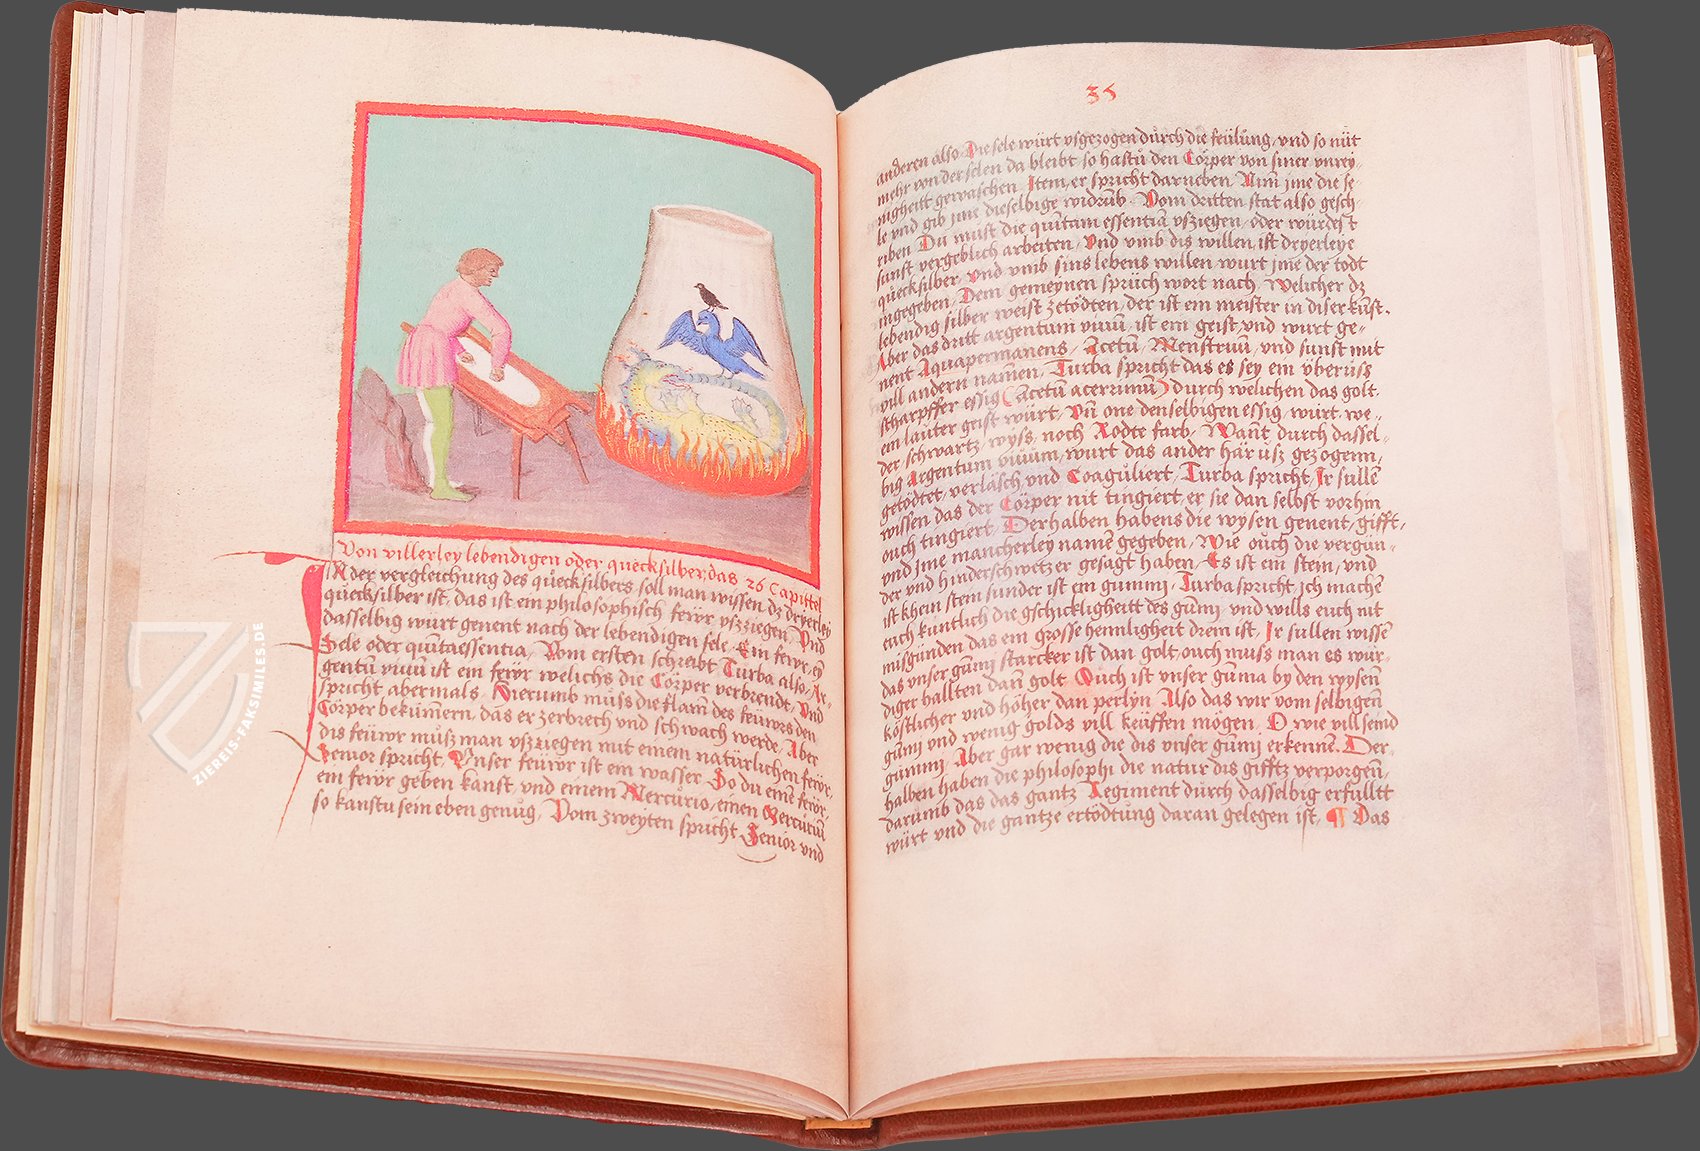 Von villerley lebendigen oder quecksilber, das 26 Capittel
IN der vergleichung des quecksilbers soll man wissen dz dryerley
quecksilber ist, das ist ein philosophisch fewr vszziegen, Vnd
dasselbig würt genent nach der lebendigen sele, Ein fewr, ey
Sele oder quintaessentia, Vom ersten schreibt Turba also, Ar-
gentū viuū ist ein fewr welichs die Cörper verbrendt, Vnd
spricht abermals, Hierumb müss die flam̄ des feüwrs den
Cörper bekümern, das er zerbrech vnd schwach werde, Aber
dis feüwr müsz man vszziegen mit einem natürlichen fewr,
Senior spricht, Vnser feüwr ist ein wasser, So du eine fewr
ein fewr geben kanst, vnd einem Mercurio, einen Mercuriū
so kanstu sein eben genüg, Vom zweyten spricht Senior vnd
35
anderen also, Die sele würt vsgezogen durch die feülung, vnd so nüt
mehr von der selen da bleibt, so hastü den Cörper von siner vnrey-
nigheitt gewaschen, Item, er spricht darneben, Nim̄ jme die se-
le vnd gib jme dieselbige widrub, Vom dritten stat also gesch-
riben, Du must die quintam essentiā vsziegen, oder würdest
sunst vergeblich arbeiten, Vnd vmb dis willen, ist dryerleye
quecksilber, vnd vmb sins lebens willen wurt jme der todt
ingegeben, Dem gemeynen sprüch wort nach, Welicher dz
lebendig silber weist zetödten, der ist ein meister in diser kunst.
Aber das dritt argentum viuū, ist ein geist, vnd wurt ge-
nent Aquapermanens, Acetū, Menstruū, vnd sunst mit
vill andern namen, Turba spricht das es sey ein überüsz
scharpffer essig (acetū acerrimū) durch welichen das golt
ein lauter geist würt, Vn̄ one denselbigen essig, würt we-
der schwartz, wyss, noch Rodte farb, Wan̄t durch dassel-
big Argentum viuum, wurt das ander här usz gezogenn,
getödtet, verläsch, vnd Coaguliert, Turba spricht, Ir sullē
wissen das der Cörper nit tingiert er sie dan selbst vorhin
ouch tingiert, Derhalben habens die wysen genent, gifft,
vnd jme mancherley namē gegeben, Wie ouch die vergün-
der vnd hinderschwetzer gesagt haben, Es ist ein stein, vnd
ist khein stein sunder ist ein gummj, Turba spricht, jch machē
euch kuntlich die gschickligheitt des gumj, vnd wills euch nit
misgünden das ein grosse heimligheit drein ist, Ir sullen wissē
das vnser gumj starcker ist dan golt, ouch muss man es wür-
diger hallten dan̄ golt, Ouch ist vnser gum̄a by den wysen̄
köstlicher vnd höher dan perlyn, Also das wir vom selbigen̄
gum̄j vnd wenig golds vill keüffen mögen, O wie vill seind
gummj, Aber gar wenig die dis vnser gum̄j erkennē. Der-
halben haben die philosophi die natur dis gifftz verporgen̄,
darumb das das gantz Regiment durch dasselbig erfülltt
würt vnd die gantze ertödtung daran gelegen ist, ¶ Das
ZIEREIS-FAKSIMILES.DE